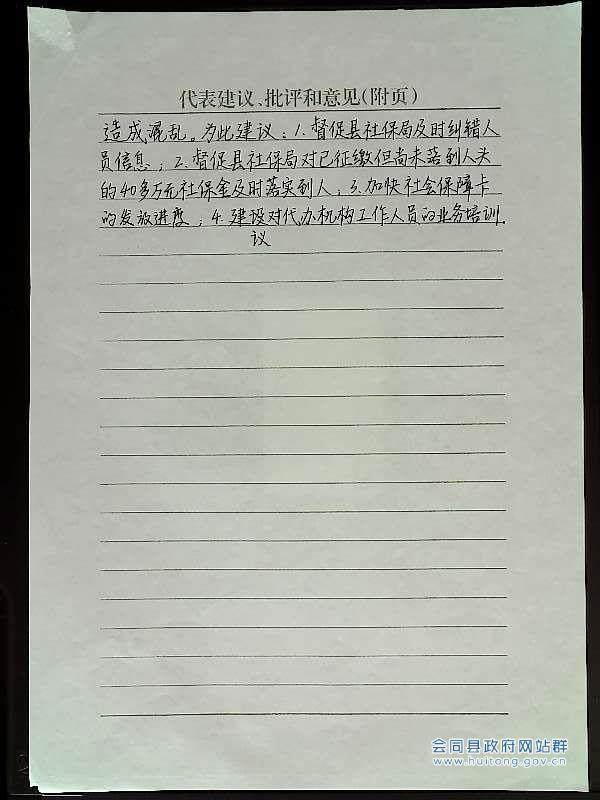 代表建议、批评和意见(附页)
造成混乱。为此建议：1.督促县社保局及时纠错人
员信息；2.督促县社保局对已征缴但尚未落到人头
的40多万元社保金及时落实到人；3.加快社会保障卡
的发放进度；4.建设对代办机构工作人员的业务培训.
议
会同县政府网站群
www.huitong.gov.cn